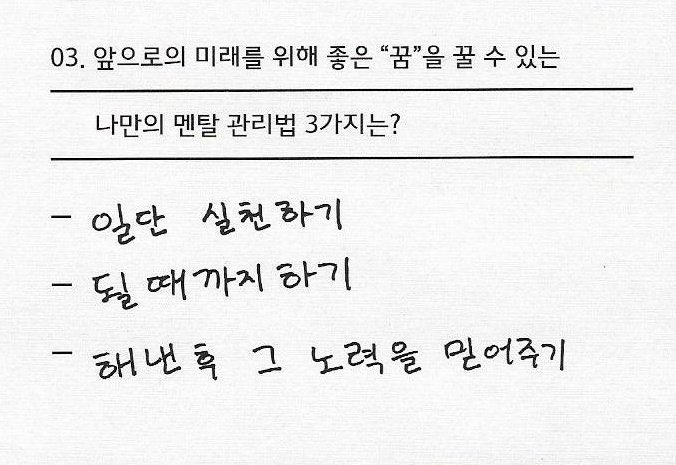 03. 앞으로의 미래를 위해 좋은 “꿈”을 꿀 수 있는
나만의 멘탈 관리법 3가지는?
- 일단 실천하기
- 될때까지하기
- 해낸후 그 노력을 믿어주기